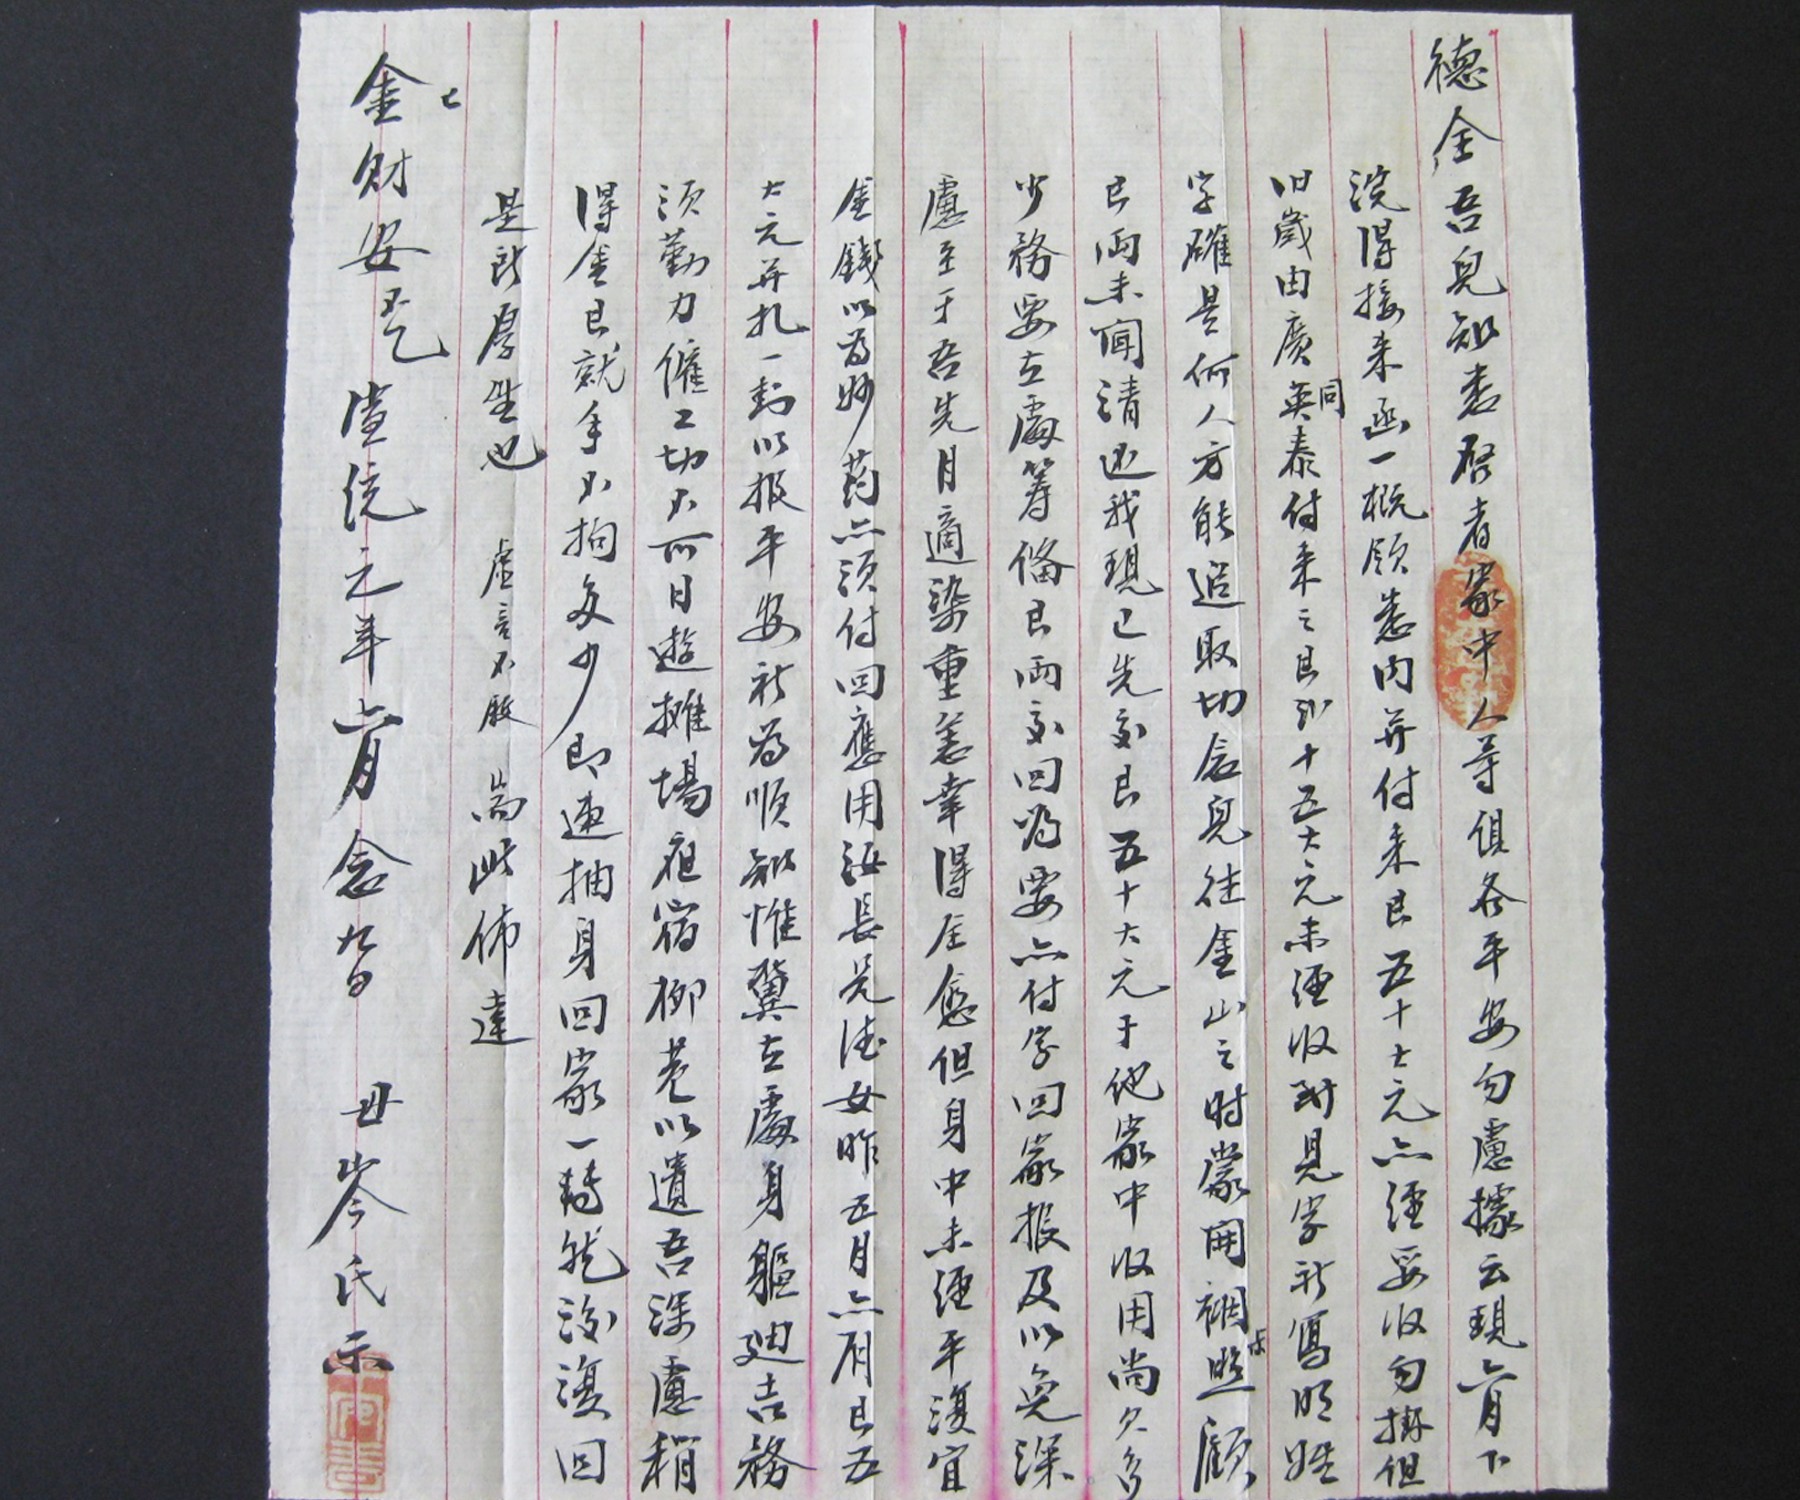 德全吾兒知悉啓者家中人等俱各平安勿慮據云現六月下
浣得接來函一概領悉內并付來艮五十大元亦經妥收勿掛但
旧歲由廣英同泰付來之艮到十五大元未經收到見字祈寫明姓
字確是何人方能追取切念兒往金山之時蒙開裯照顧
艮両未聞清还我現已先交艮五十大元于他家中收用尚欠多
少務要左處筹俻艮両交回為要亦付字回家报及以免深
慮至于吾先月適染重恙幸得全愈但身中未經平復宜
金錢以為妙药亦須付回應用汝長兄德女昨五月亦有艮五
大元并扎一封以报平安祈為順知惟冀左處身軀廸吉務
須勤力傭工切不可日遊攤場夜宿柳巷以遺吾深慮稍
得金艮就手不拘多少即速抽身回家一轉然後復回
是所厚望也 虚言不殷 耑此佈達
金財安 七
宣統元年六月念九日 母岑氏示